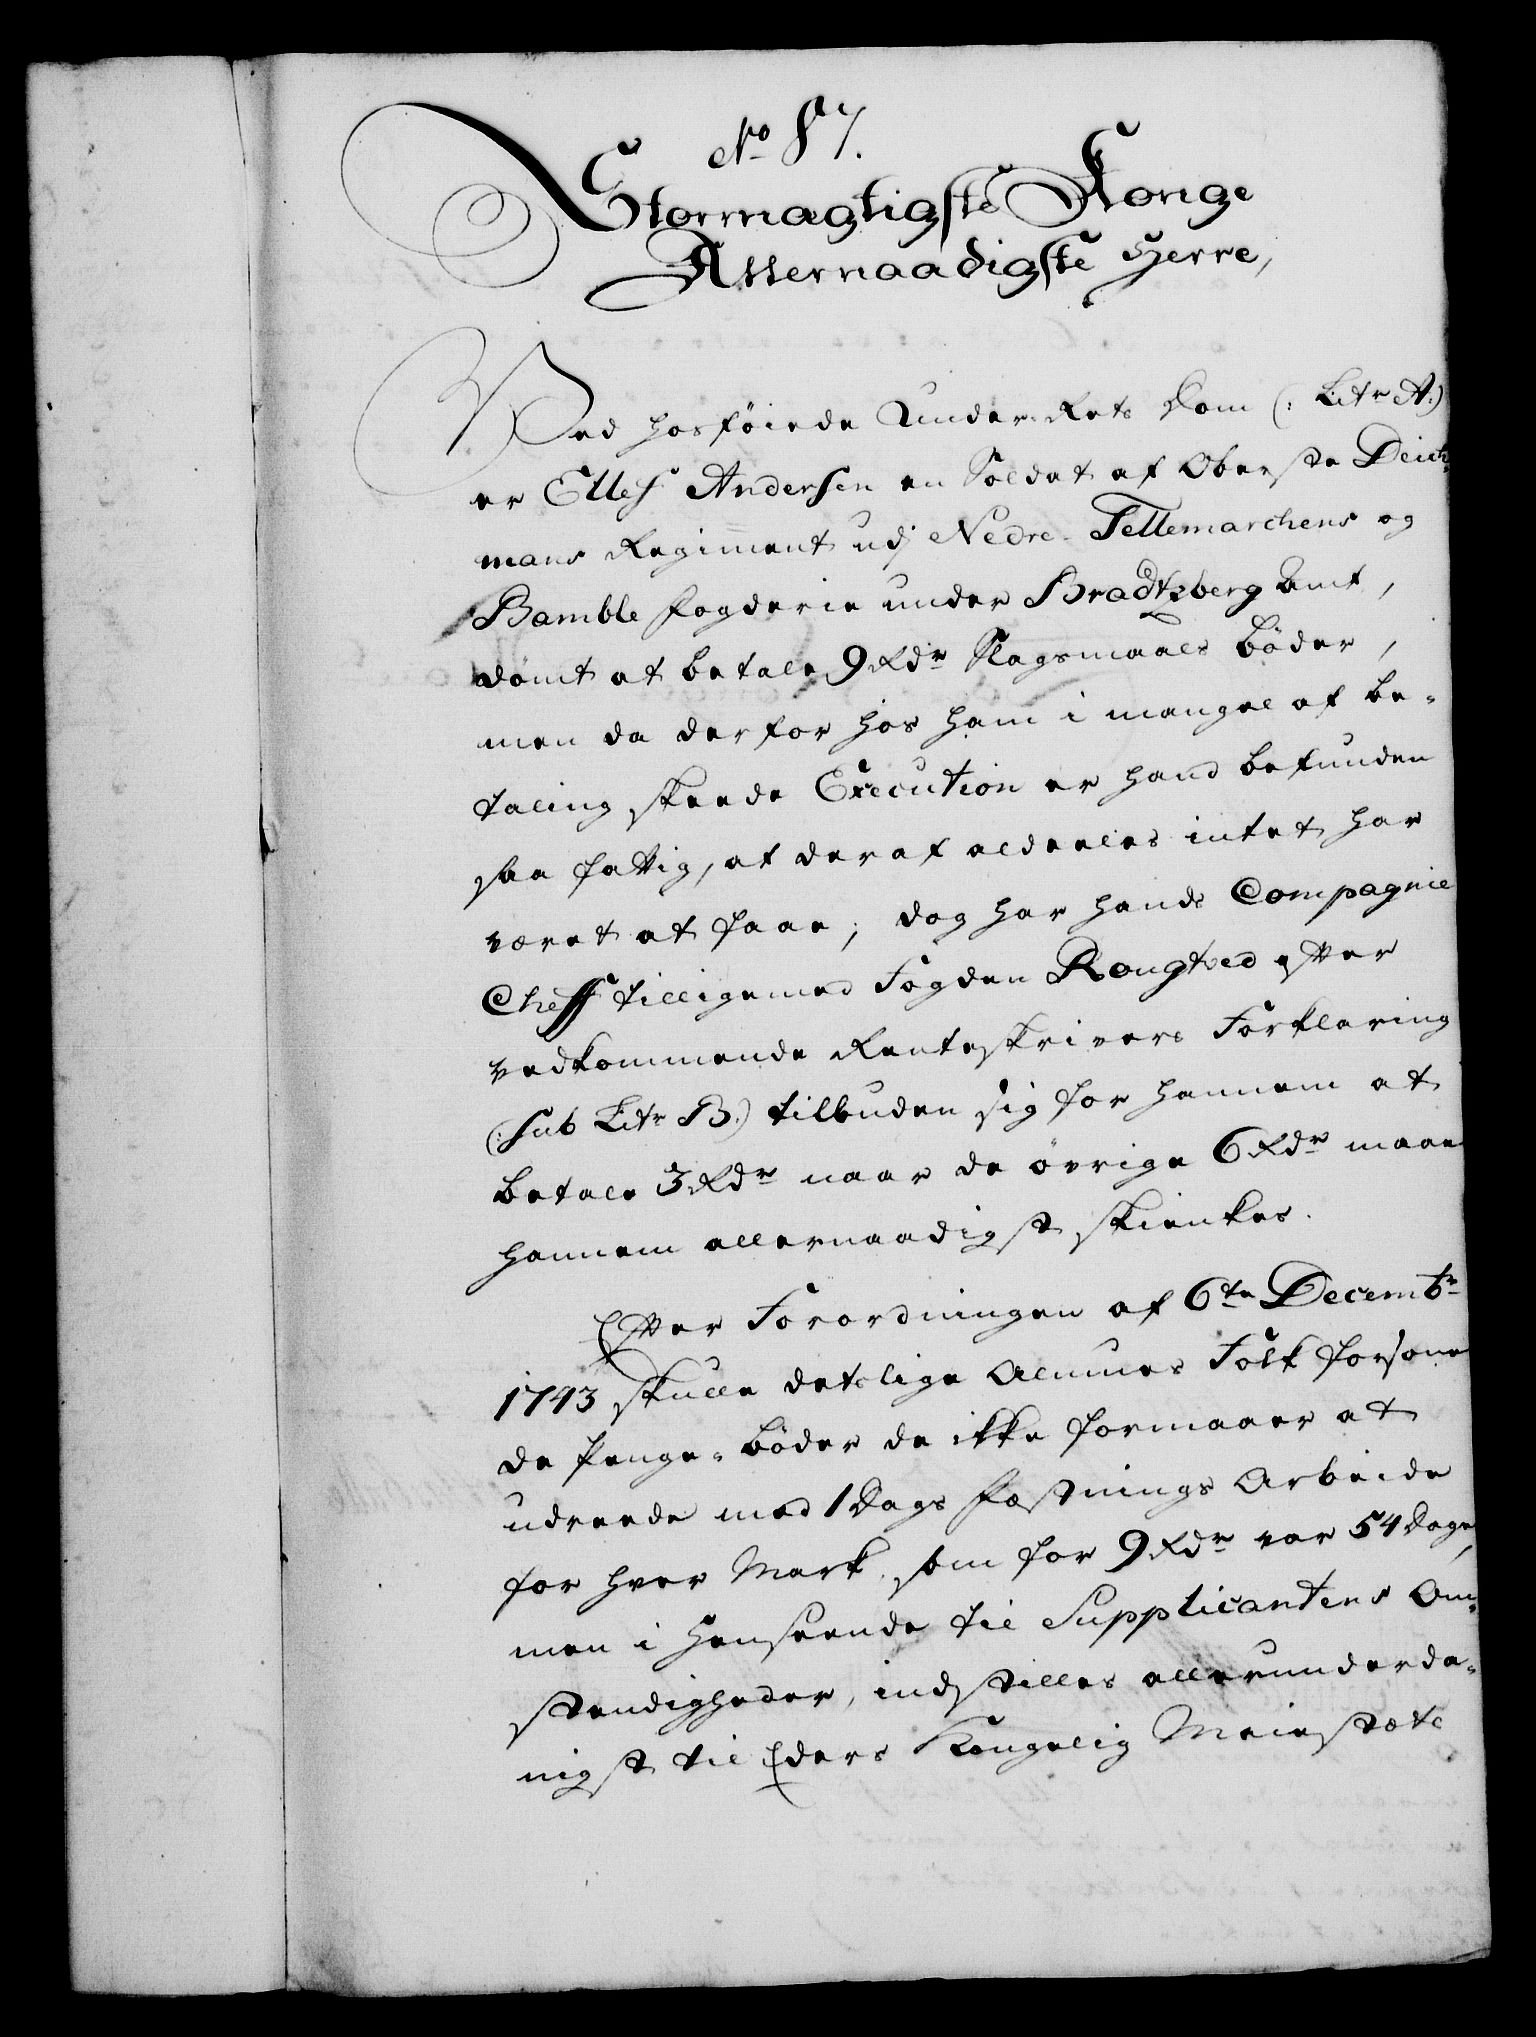 No 87.
Stormægtigste Konge
Allernaadigste Herre,
Ved hosføiede Under-Rets Dom (: Litr A:)
er Ellef Andersen en Soldat af Oberste Deich-
mans Regiment udj Nedre Tellemarchens og
Bamble Fogderie under Bradtzberg Amt,
dømt at betale 9 Rdr Slagsmaals bøder,
men da derfor hos ham i mangel af be-
taling skeede Execution er hand befunden
saa fattig, at deraf aldeeles intet har
været at faae; dog har hands Compagnie
Cheff tilligemed Fogden Rougtved efter
vedkommende Renteskrivers Forklaring
(: sub Litr B.) tilbuden sig for hannem at
betale 3 Rdr naar de øvrige 6 Rdr maae
hannem allernaadigst skienkes.
Efter Forordningen af 6te Decembr
1743 skulle detslige Almues Folk forsone
de Penge-bøder de ikke formaaer at
udreede med 1 Dags Fæstnings Arbeide
for hver Mark, som for 9 Rdr var 54 Dage,
men i Henseende til Supplicantens Om-
stendigheder, indstilles allerunderda-
nigst til Eders Kongelig Majestæts